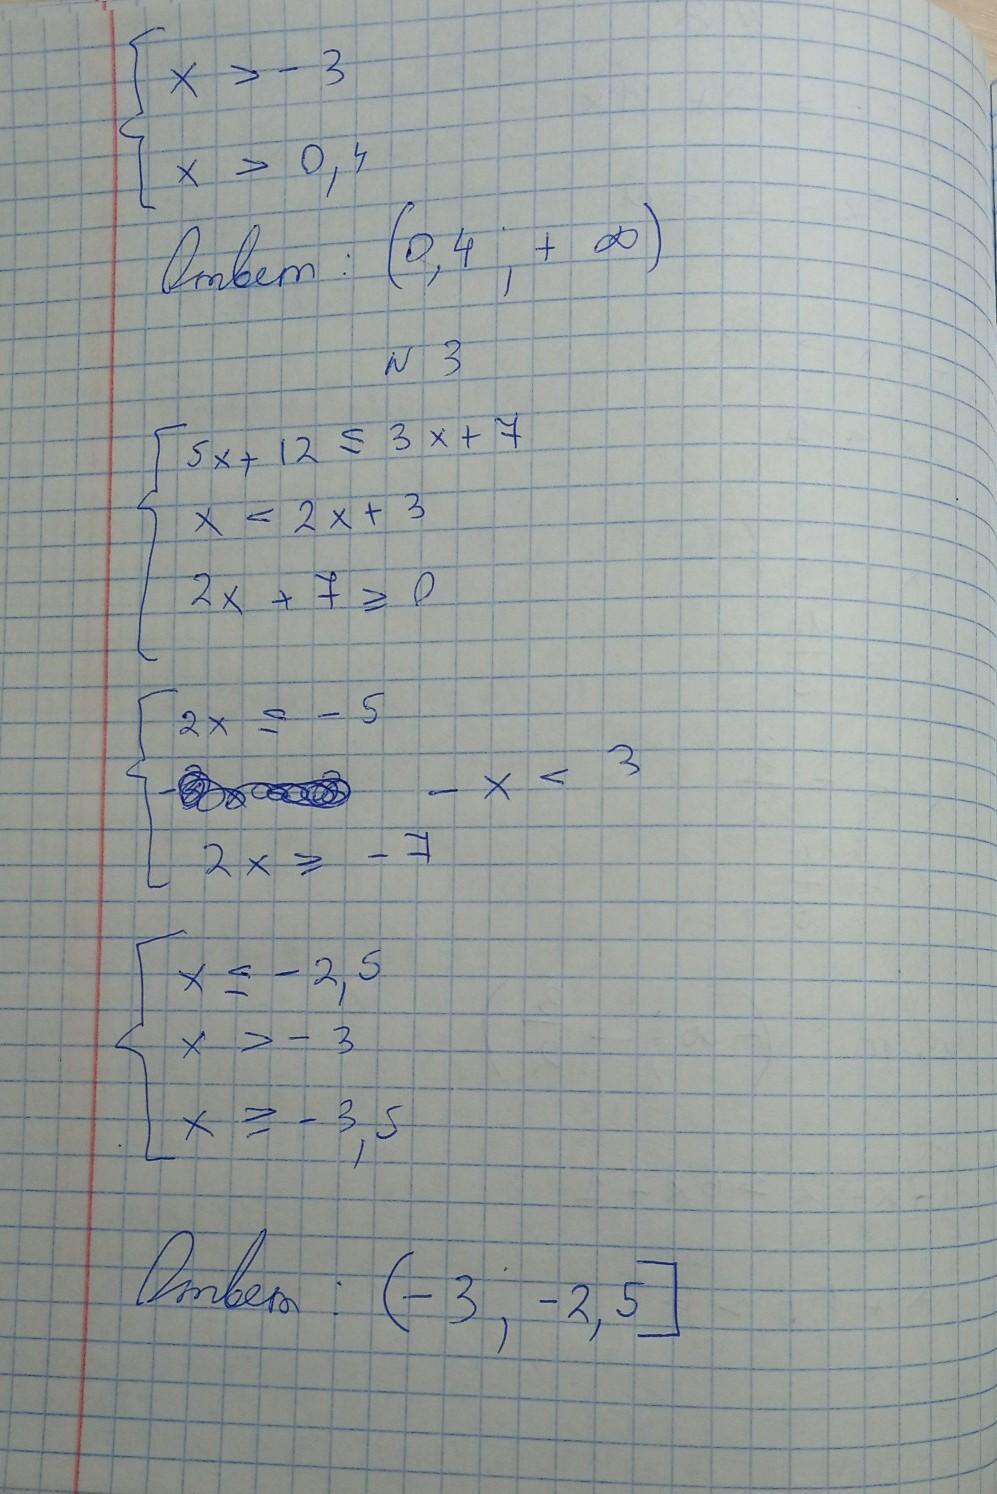 x > - 3
x > 0,4
Ответ : (0,4 ; + ∞)
N 3
5x + 12 ≤ 3x + 7
x < 2x + 3
2x + 7 ≥ 0
2x ≤ - 5
- x < 3
2x ≥ - 7
x ≤ - 2,5
x > - 3
x ≥ - 3,5
Ответ : (- 3 ; - 2,5]